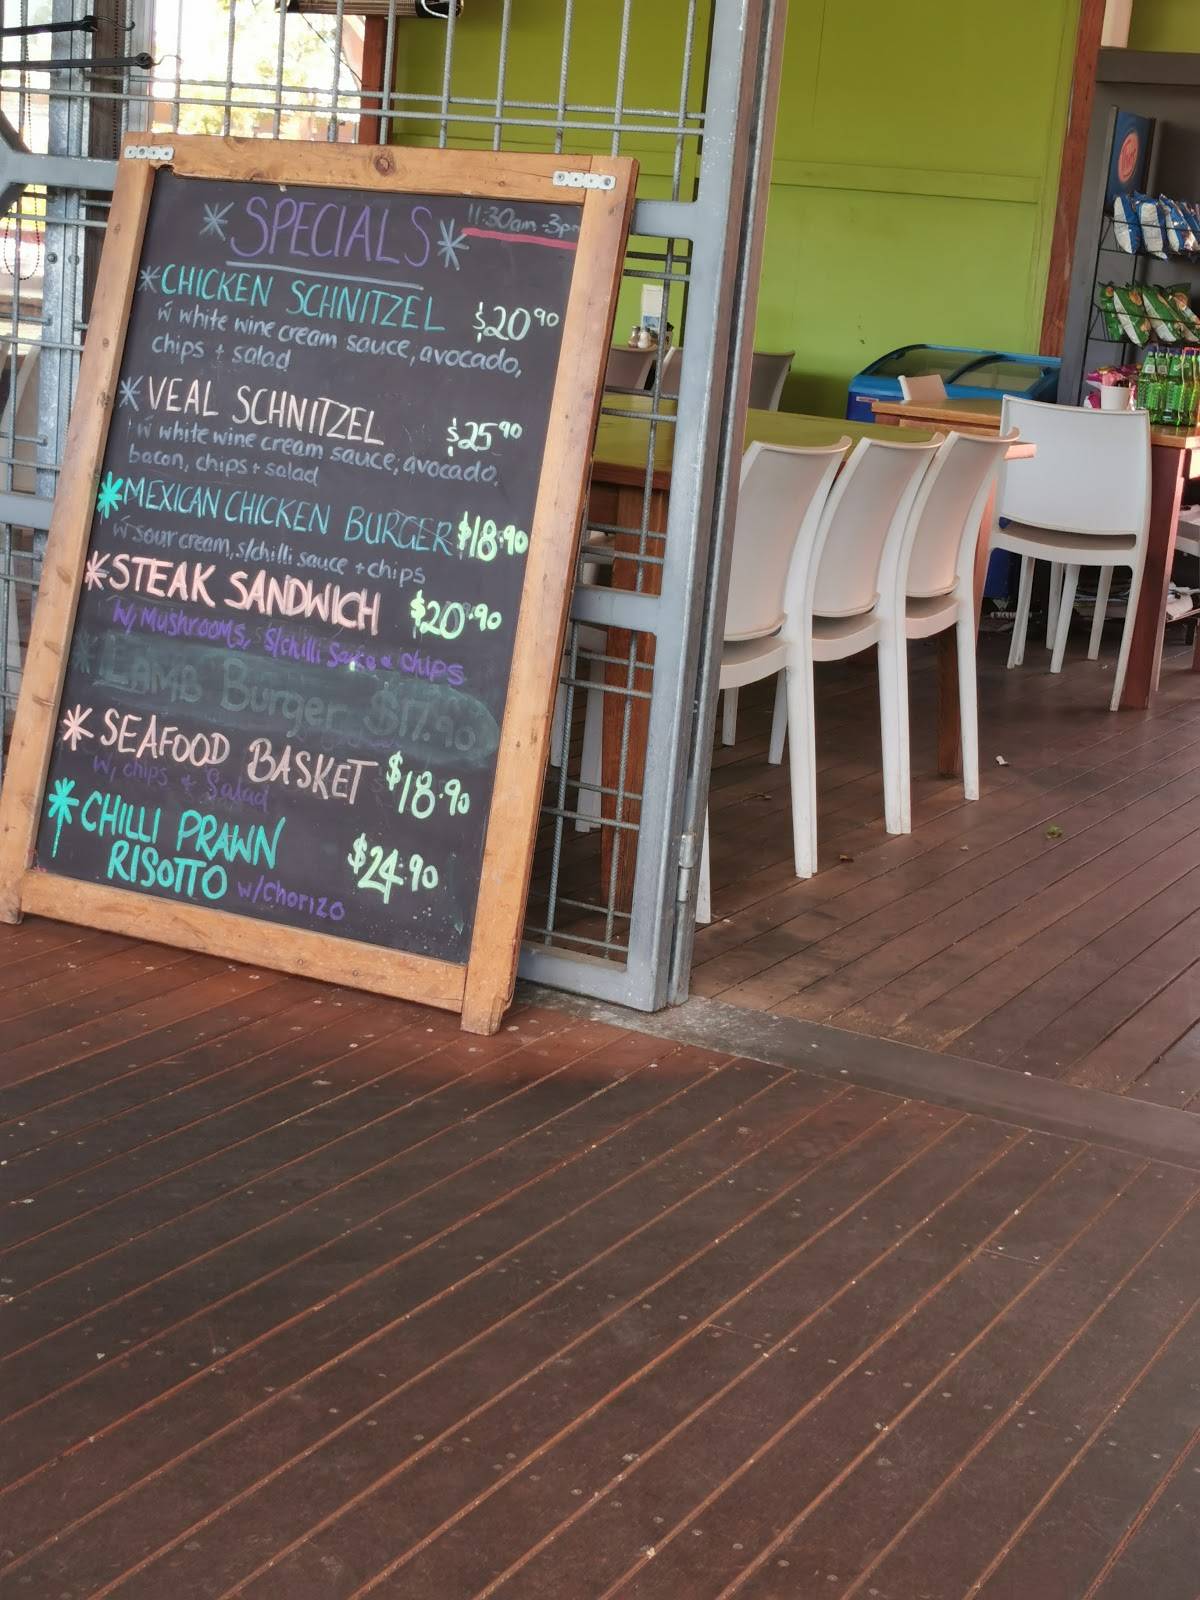 *SPECIALS* 11:30am-3pm
*CHICKEN SCHNITZEL $20.90
w white wine cream sauce, avocado,
chips + salad
*VEAL SCHNITZEL $25.90
w white wine cream sauce, avocado,
bacon, chips + salad
*MEXICAN CHICKEN BURGER $18.90
w sour cream, s/chilli sauce + chips
*STEAK SANDWICH $20.90
w/ Mushrooms, s/chilli chips
*LAMB Burger $17.90
*SEAFOOD BASKET $18.90
w/ chips + Salad
*CHILLI PRAWN
RISOTTO w/chorizo $24.90